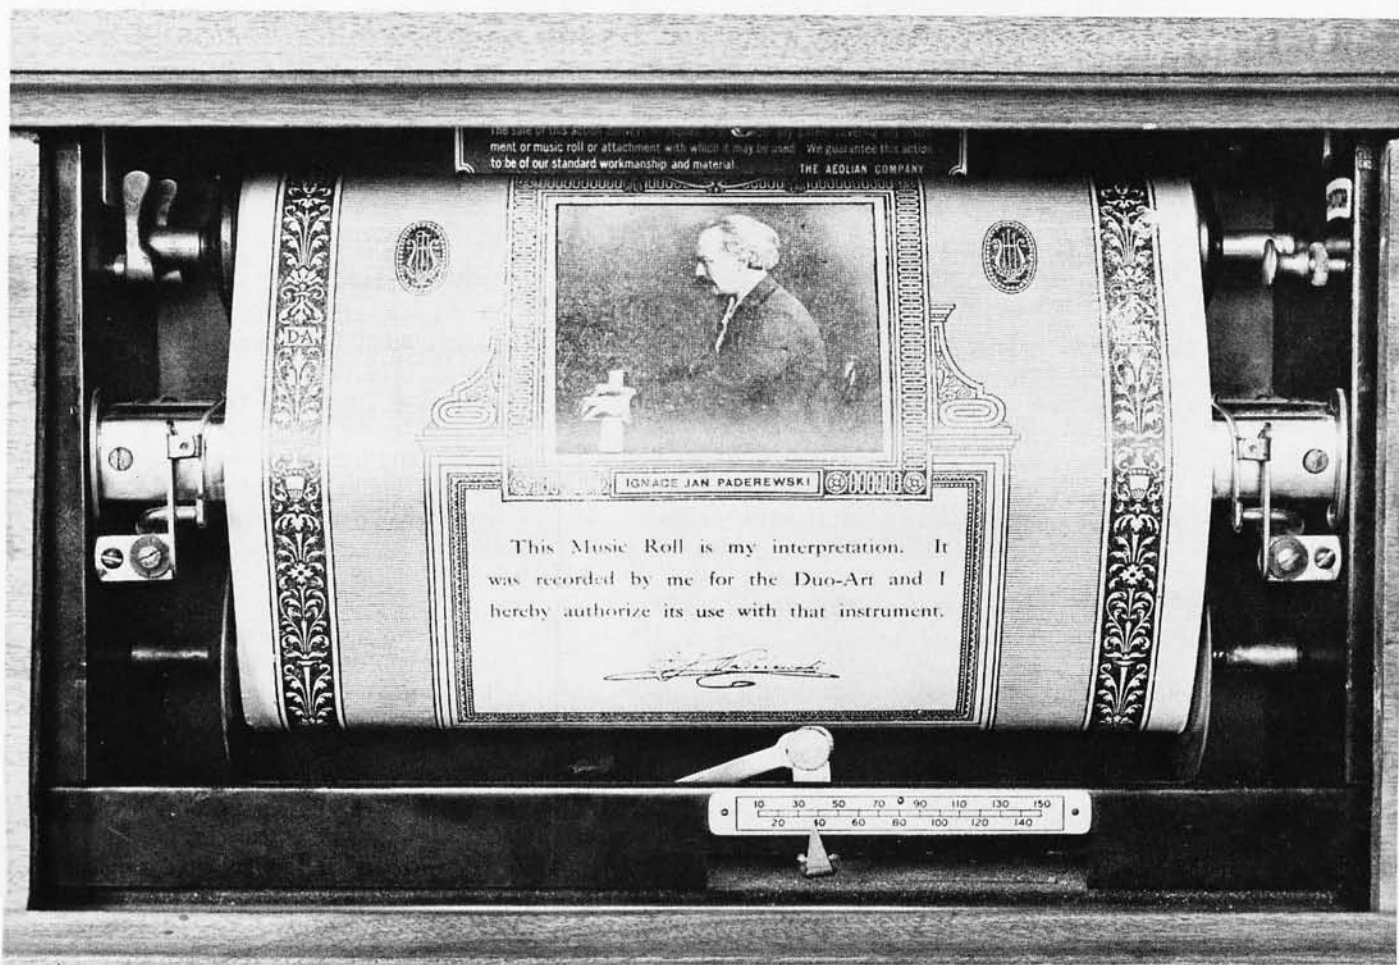 ment or music roll or attachment with which it may be used. We guarantee this action
to be of our standard workmanship and material. THE AEOLIAN COMPANY
DA
IGNACE JAN PADEREWSKI
This Music Roll is my interpretation. It
was recorded by me for the Duo-Art and I
hereby authorize its use with that instrument.
I. J. Paderewski
10 30 50 70 90 110 130 150
20 40 60 80 100 120 140